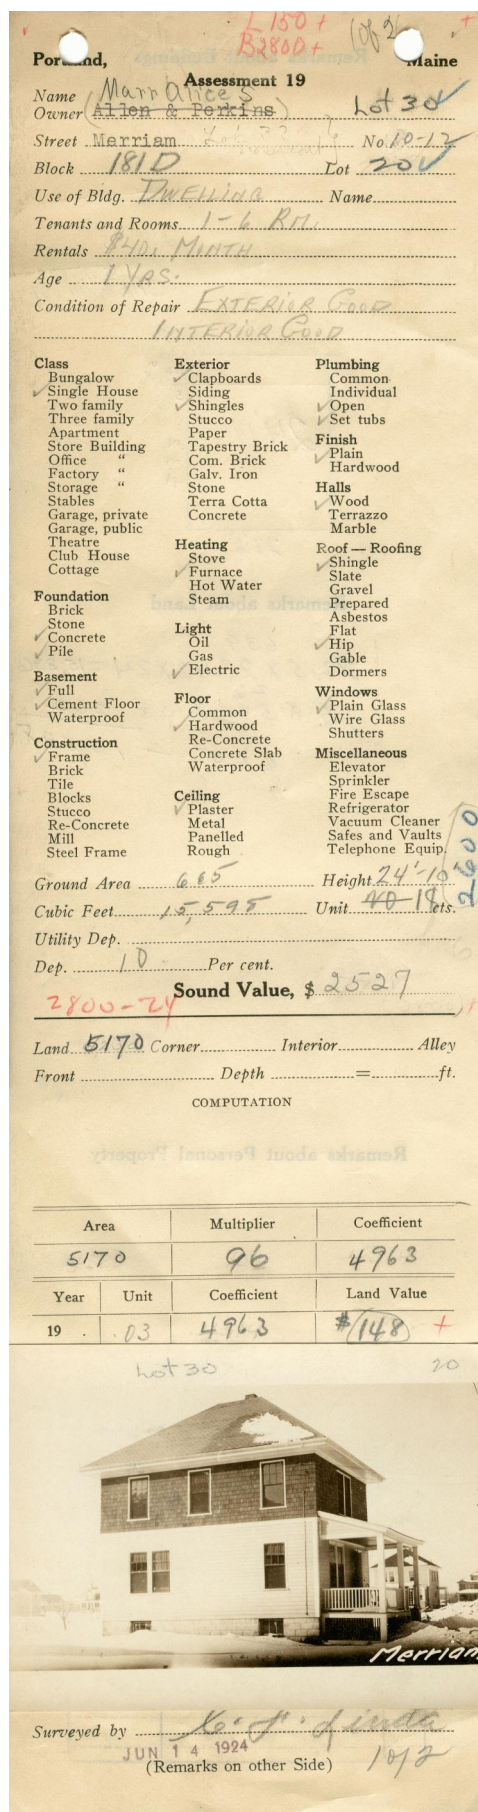 L 150 +
B 2800 +
1 of 2
+
Portland, Maine
Assessment 19
Name Marr Alice S
Owner (Allen & Perkins) Lot 30
Street Merriam No. 10-12
Block 181D Lot 20
Use of Bldg. DWELLING Name
Tenants and Rooms 1-6 RM.
Rentals $40. MONTH
Age 1 YRS.
Condition of Repair EXTERIOR GOOD
INTERIOR GOOD
Class
Bungalow
✓ Single House
Two family
Three family
Apartment
Store Building
Office "
Factory "
Storage "
Stables
Garage, private
Garage, public
Theatre
Club House
Cottage
Foundation
Brick
Stone
✓ Concrete
✓ Pile
Basement
✓ Full
✓ Cement Floor
Waterproof
Construction
✓ Frame
Brick
Tile
Blocks
Stucco
Re-Concrete
Mill
Steel Frame
Exterior
✓ Clapboards
Siding
✓ Shingles
Stucco
Paper
Tapestry Brick
Com. Brick
Galv. Iron
Stone
Terra Cotta
Concrete
Heating
Stove
✓ Furnace
Hot Water
Steam
Light
Oil
Gas
✓ Electric
Floor
Common
✓ Hardwood
Re-Concrete
Concrete Slab
Waterproof
Ceiling
✓ Plaster
Metal
Panelled
Rough
Plumbing
Common
Individual
✓ Open
✓ Set tubs
Finish
✓ Plain
Hardwood
Halls
✓ Wood
Terrazzo
Marble
Roof — Roofing
✓ Shingle
Slate
Gravel
Prepared
Asbestos
Flat
✓ Hip
Gable
Dormers
Windows
✓ Plain Glass
Wire Glass
Shutters
Miscellaneous
Elevator
Sprinkler
Fire Escape
Refrigerator
Vacuum Cleaner
Safes and Vaults
Telephone Equip.
2600
Ground Area 665 Height 24'-10"
Cubic Feet 15,595 Unit 20 18 cts.
Utility Dep.
Dep. 10 Per cent.
Sound Value, $ 2527
2800-24
Land 5170 Corner Interior Alley
Front Depth = ft.
COMPUTATION
Area Multiplier Coefficient
5170 96 4963
Year Unit Coefficient Land Value
19 . .03 4963 $ 148 +
Lot 30 20
Merriam
Surveyed by
JUN 14 1924
1 of 2
(Remarks on other Side)